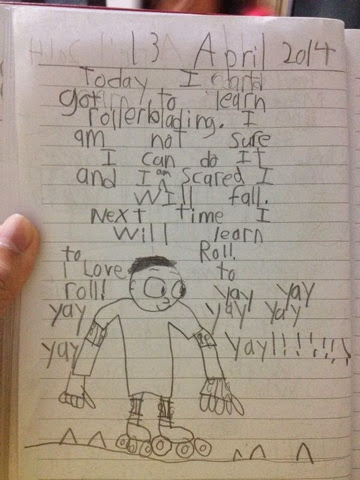 13 April 2014
Today I
got to learn
rollerblading. I
am not sure
I can do It
and I am scared I
will fall.
Next time I
will learn
to Roll.
I Love to
roll! yay yay
yay yay yay
yay yay!!!!!!!